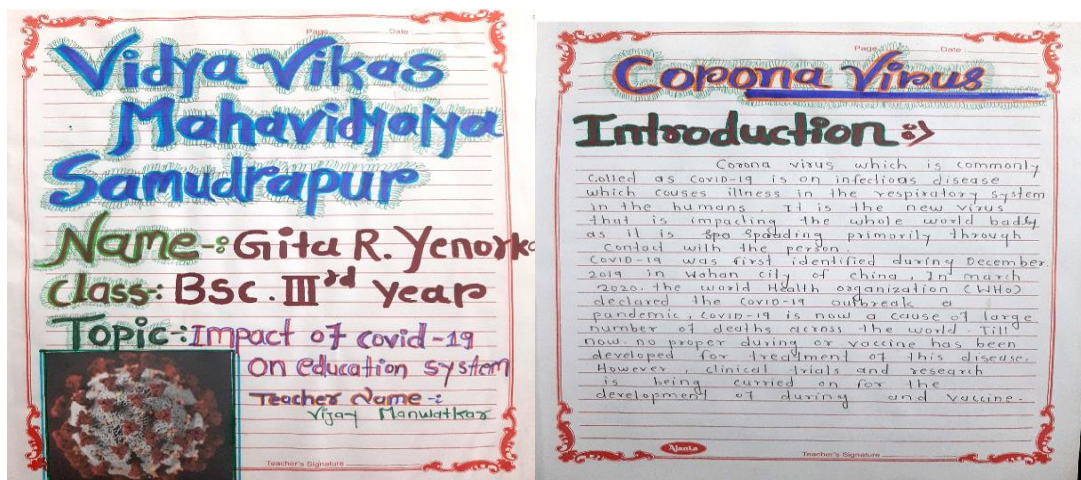 Page Date
Vidya Vikas
Mahavidyalya
Samudrapur
Name-: Gita R. Yenork
Class:- BSc. III rd year
Topic:- Impact of covid-19
on education system
Teacher Name-:
Vijay Manwatkar
Teacher's Signature
Page Date
Corona Virus
Introduction :->
Corona virus which is commonly
Called as COVID-19 is on infectious disease
which causes illness in the respiratory system
in the humans. It is the new virus
that is impacting the whole world badly
as it is Spa Spoading primarily through
Contact with the person.
COVID-19 was first identified during December.
2019 in Wohan city of china, In march
2020. the world Health organization (WHO)
declared the COVID-19 outbreak a
pandemic, COVID-19 is now a cause of large
number of deaths across the world. Till
now. no proper during or vaccine has been
developed for treatment of this disease.
However, clinical trials and research
is being curried on for the
development of during and vaccine.
Ajanta
Teacher's Signature